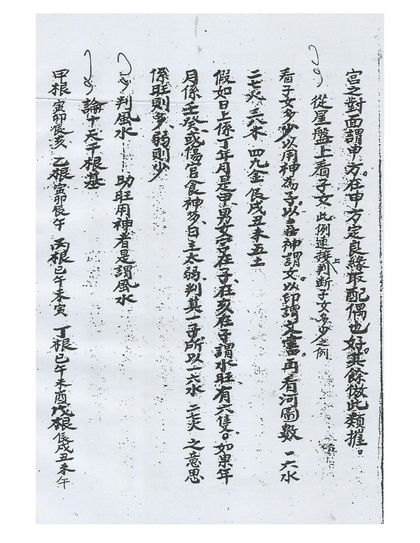 宫之对面謂申方。在申方定良緣取配偶也好。其餘倣此類推。
從星盤上看子女 此例速検判断子女多少之例
看子女多少以用神為子。以喜神謂女。以印謂文書。再看河圖數 一六水
二七火 三八木 四九金 辰戌丑未五土
假如日上係丁年月是甲男女宮在子。在亥在子謂水旺。有六隻。如果年
月係壬癸。或傷官食神多。日主太弱。判其一子所以一六水 二七火 之意思
係旺則多弱則少
判風水 助旺用神者是謂風水
論十天干根基
甲根 寅卯辰亥 乙根寅卯辰午 丙根巳午未寅 丁根巳午未酉 戊根辰戌丑未午